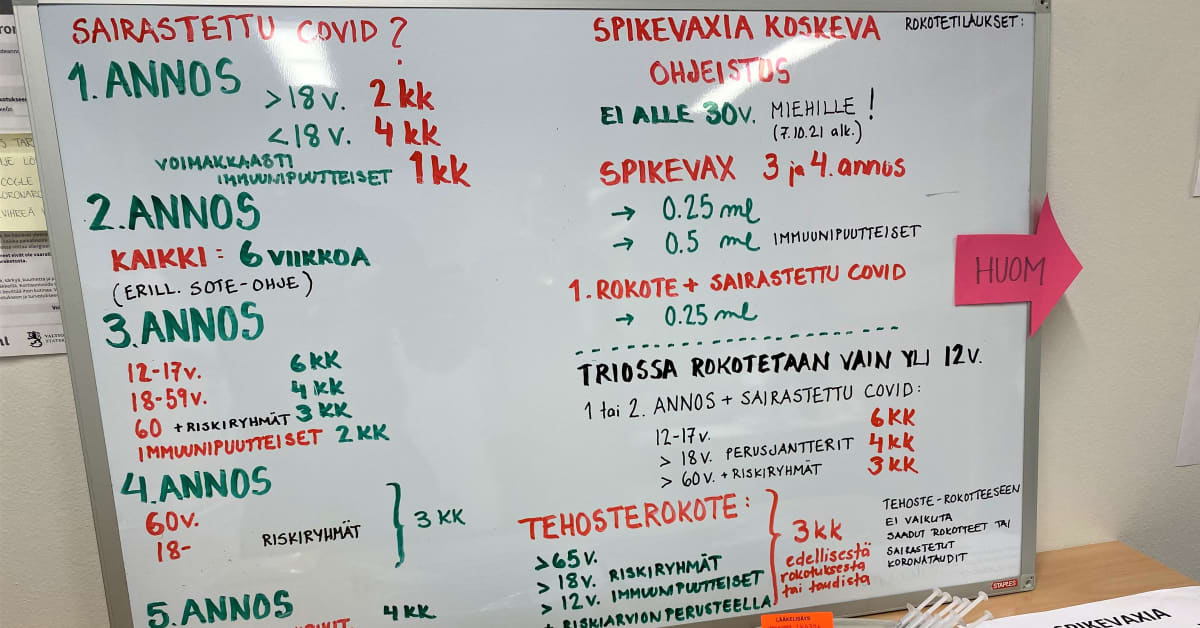 SAIRASTETTU COVID?
1. ANNOS
>18 V. 2 kk
<18 V. 4 kk
VOIMAKKAASTI
IMMUUNIPUUTTEISET 1 kk
2. ANNOS
KAIKKI: 6 VIIKKOA
(ERILL. SOTE-OHJE)
3. ANNOS
12-17V. 6 KK
18-59V. 4 KK
60 + RISKIRYHMÄT 3 KK
IMMUUNIPUUTTEISET 2 KK
4. ANNOS
60V.
18- RISKIRYHMÄT } 3 KK
5. ANNOS 4 KK
SPIKEVAXIA KOSKEVA
OHJEISTUS
EI ALLE 30V. MIEHILLE!
(7.10.21 alk.)
SPIKEVAX 3 ja 4. annos
→ 0.25 ml
→ 0.5 ml IMMUUNIPUUTTEISET
1. ROKOTE + SAIRASTETTU COVID
→ 0.25 ml
TRIOSSA ROKOTETAAN VAIN YLI 12V.
1 tai 2. ANNOS + SAIRASTETTU COVID:
12-17V. 6 KK
> 18V. PERUSJANTTERIT 4 KK
> 60V. + RISKIRYHMÄT 3 KK
TEHOSTEROKOTE:
>65V.
> 18V. RISKIRYHMÄT
> 12V. IMMUUNIPUUTTEISET
+ RISKIARVION PERUSTEELLA
3 KK
edellisestä
rokotuksesta
tai taudista
TEHOSTE-ROKOTTEESEEN
EI VAIKUTA
SAADUT ROKOTTEET TAI
SAIRASTETUT
KORONATAUDIT
ROKOTETILAUKSET:
HUOM
STAPLES
LÄÄKELISÄYS
SPIKEVAXIA